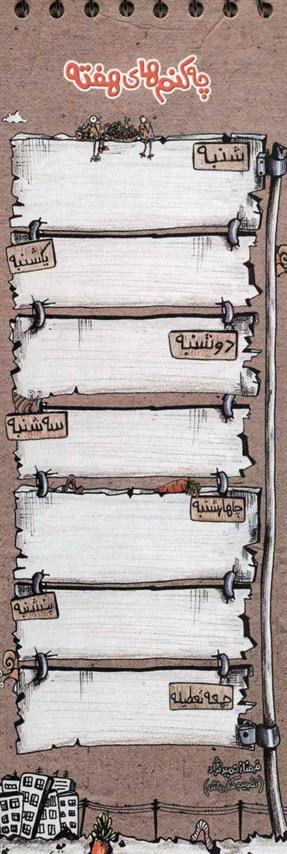 چه کنم های هفته
شنبه
یکشنبه
دوشنبه
سه شنبه
چهارشنبه
پنشنبه
جمعه تعطیله